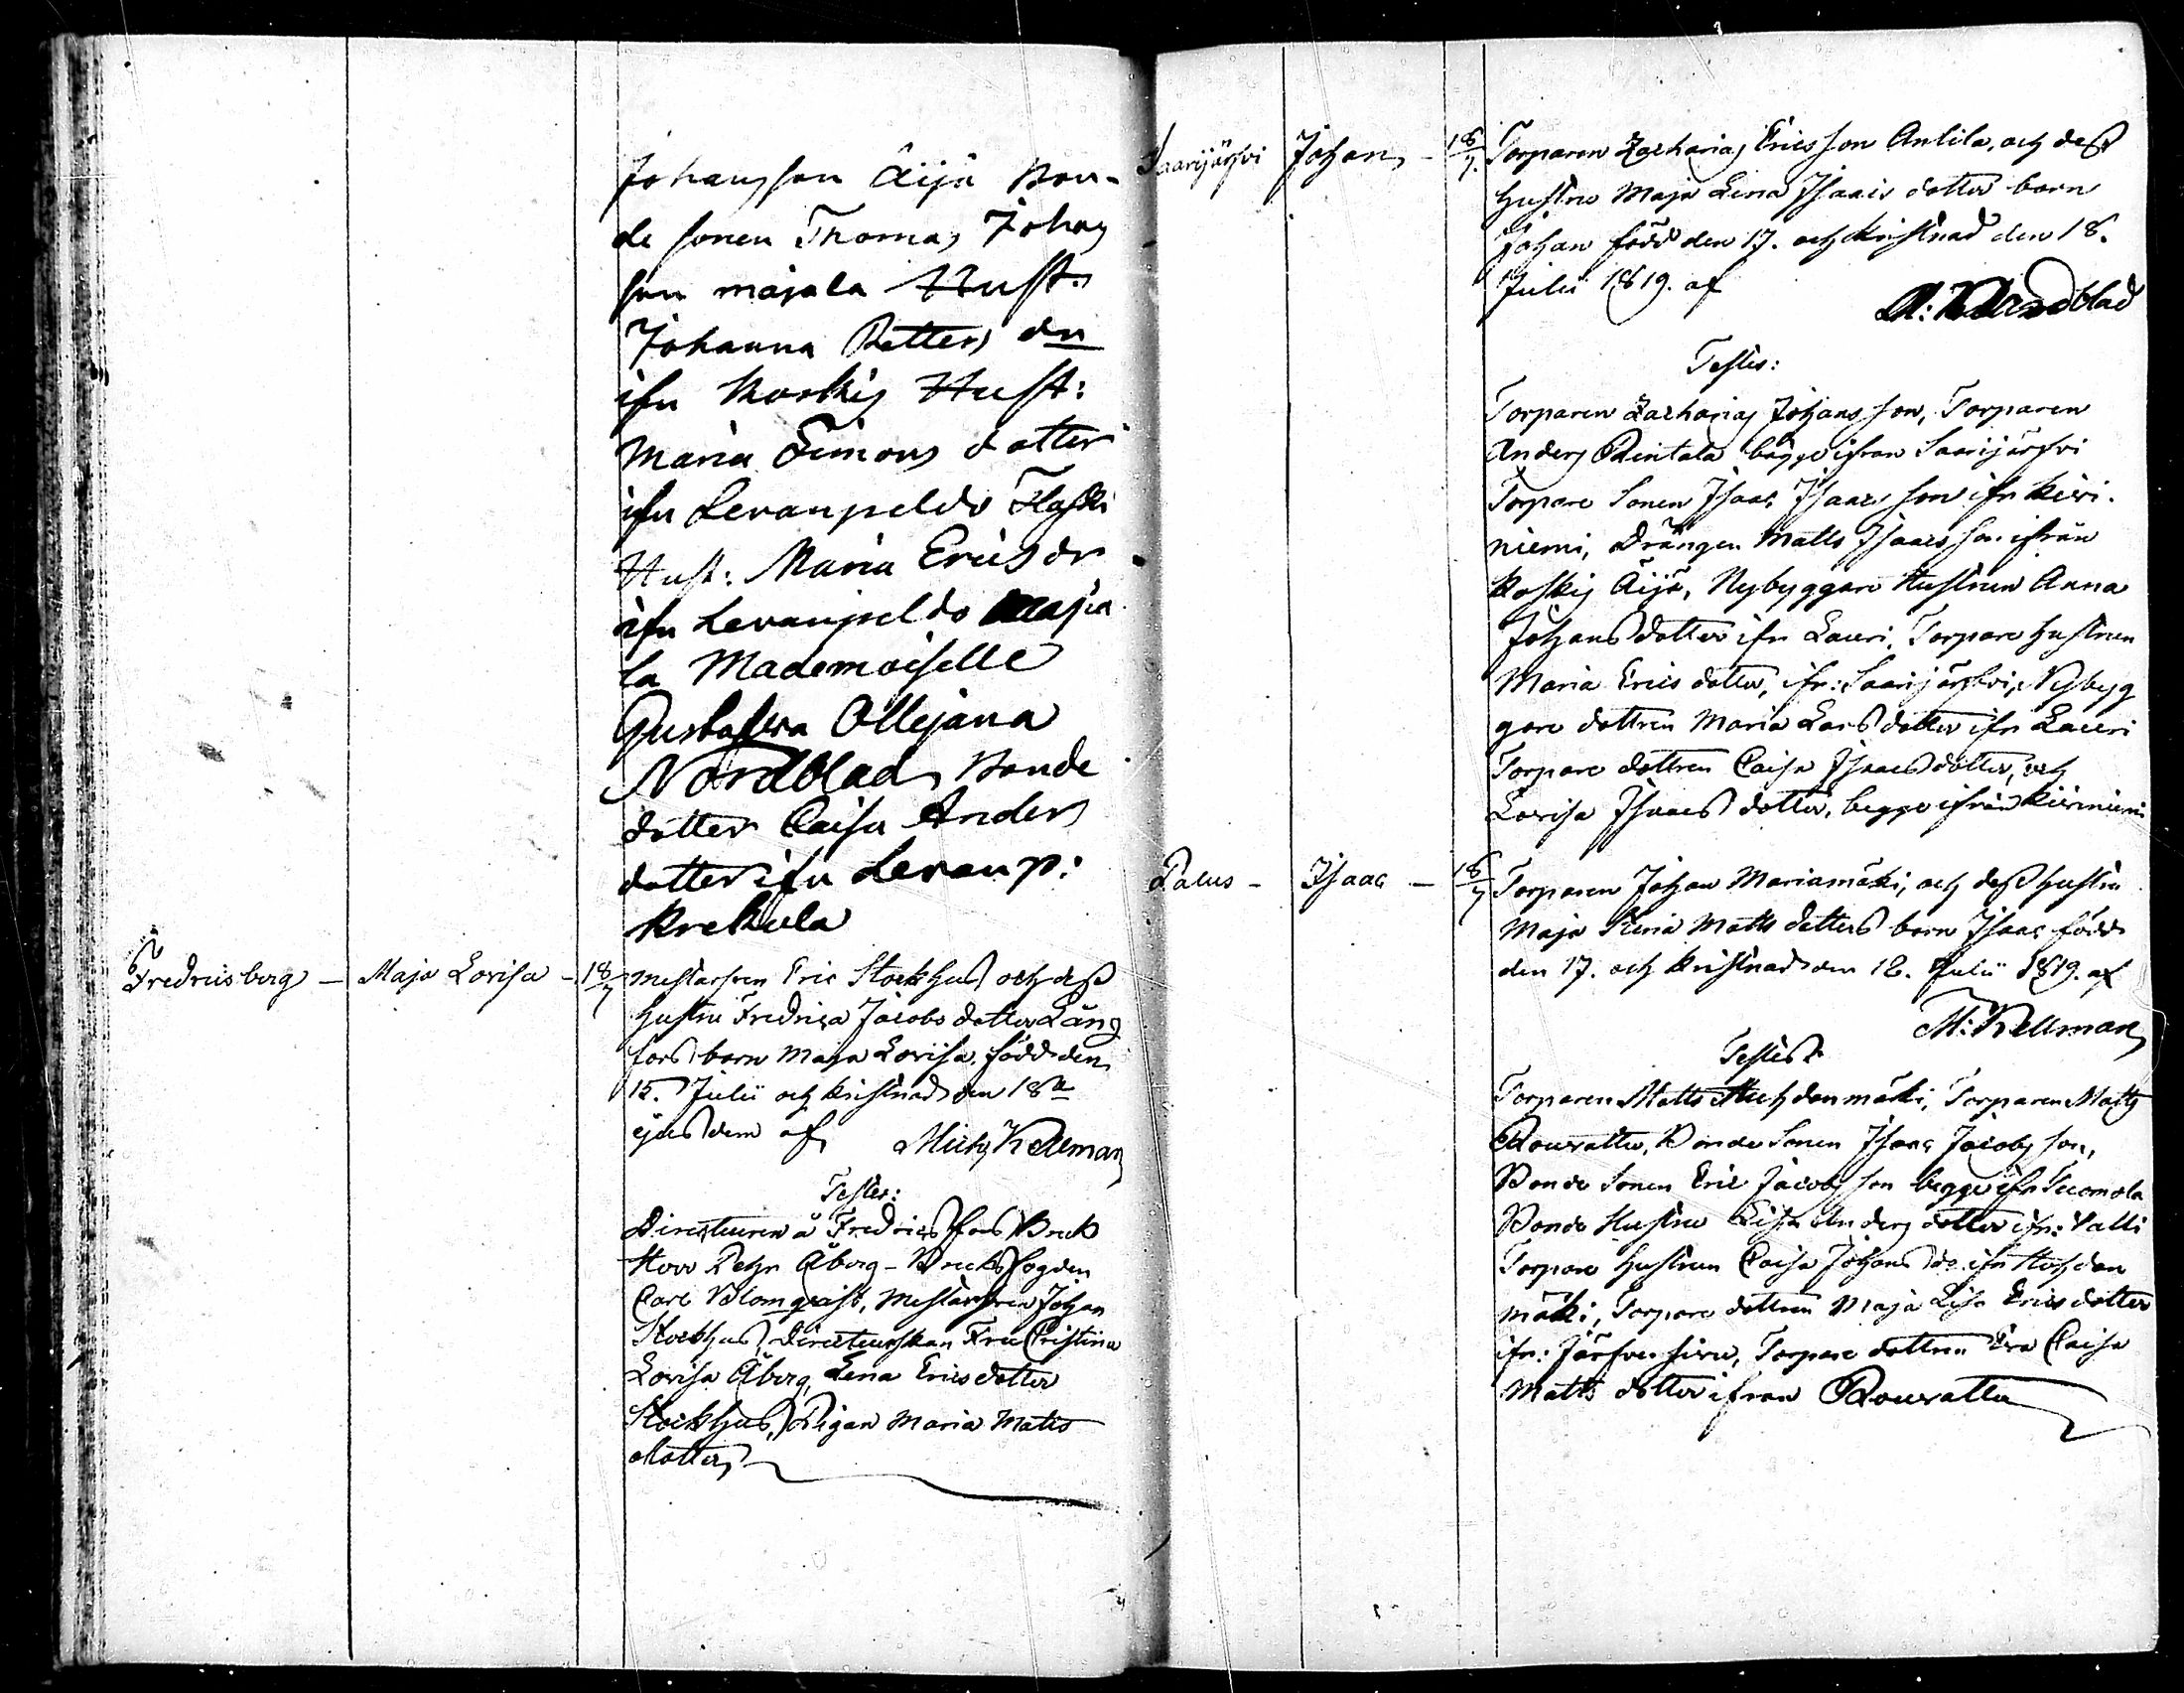 Johansson Äijä Bon-
de sonen Thomas Johans
son majala Hust.
Johanna Petters dr
ifn Koskis Hust:
Maria Simons dotter
ifn Leraupeldo
Hust: Maria Ericsdr
ifn Leraupeldo maja
la Mademoiselle
Gustafva
Nordblad, Bonde
dotter Caisa Anders
dotter ifn Leraup:
Krekula
Fredricsberg – Maja Lovisa – 18/7 Mestarsven Eric Stockhus och dess
hustru Fredrica Jacobs dotter Lång
fors barn Maja Lovisa, född den
15. Julii och kristnad den 18de
ejusdem af Mich. Kellman
Testes:
Directeuren å Fredricsfors Bruk
Herr Pehr Åberg – Bruksfogden
Carl Blomqvist, Mestarsven Johan
Stockhus, Directeurskan Fru Cristina
Lovisa Åberg, Lena Ericsdotter
Stockhus, Pigan Maria Matts
dotter,
Saarijärfvi Johan – 18/7. Torparen Zacharias Ericsson Antila, och dess
hustru Maja Lena Isaacs dotter barn
Johan född den 17. och kristnad den 18.
Julii 1819. af
Nordblad
Testes:
Torparen Zacharias Johansson, Torparen
Anders Rintala bägge ifrån Saarijärfvi
Torpare Sonen Isaac Isaacsson ifn Kivi-
niemi, Drängen Matts Isaacsson ifrån
Koskis Äijä, Nybyggare Hustrun Anna
Johansdotter ifn Lauri, Torpare hustrun
Maria Erics dotter, ifn: Saarijärfvi, Nybyg
gare dottren Maria Larsdotter ifn Lauri
Torpare dottren Caisa Isaacsdotter, och
Lovisa Isaacs dotter, begge ifrån Kiviniemi
Palus – Isaac – 18/7 Torparen Johan Mariamäki, och dess hustru
Maja Matts dotters barn Isaac född
den 17. och kristnad den 18. Julii 1819. af
M: Kellman
Testes
Torparen Matts Huhdanmäki, Torparen Matts
Rouvattu, Bonde Sonen Isaac Jacobsson,
Bonde Sonen Eric Jacobsson begge ifn Tuomola
Bonde Hustru Lisa Anders dotter ifn: Valli
Torpare hustrun Caisa Johans dr. ifn Huhdan
mäki, Torpare dottren Maja Lisa Ericsdotter
ifn: Järfvensivu, Torpare dottren Eva Caisa
Matts dotter ifrån Rouvattu